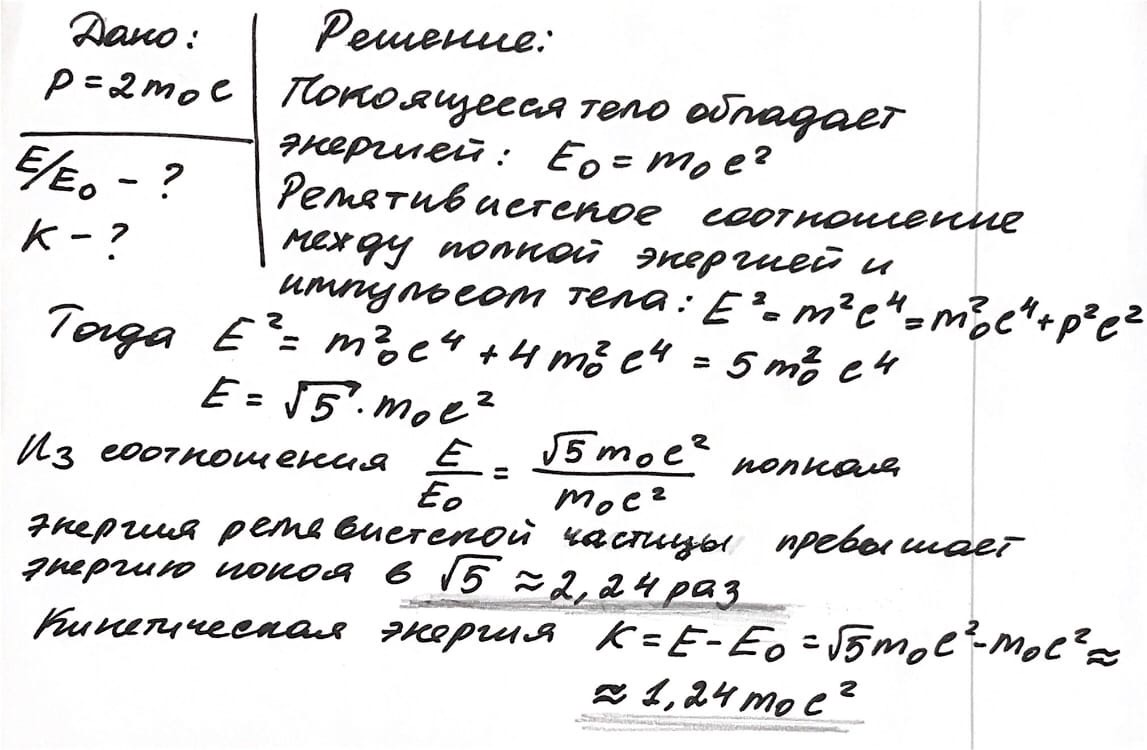 Дано:
p = 2m₀c
E/E₀ - ?
K - ?
Решение:
Покоящееся тело обладает
энергией: E₀ = m₀c²
Релятивистское соотношение
между полной энергией и
импульсом тела: E² = m²c⁴ = m₀²c⁴ + p²c²
Тогда E² = m₀²c⁴ + 4m₀²c⁴ = 5m₀²c⁴
E = √5 · m₀c²
Из соотношения E/E₀ = √5m₀c²/m₀c² полная
энергия релявистской частицы превышает
энергию покоя в √5 ≈ 2,24 раз
Кинетическая энергия K = E - E₀ = √5m₀c² - m₀c² ≈
≈ 1,24m₀c²